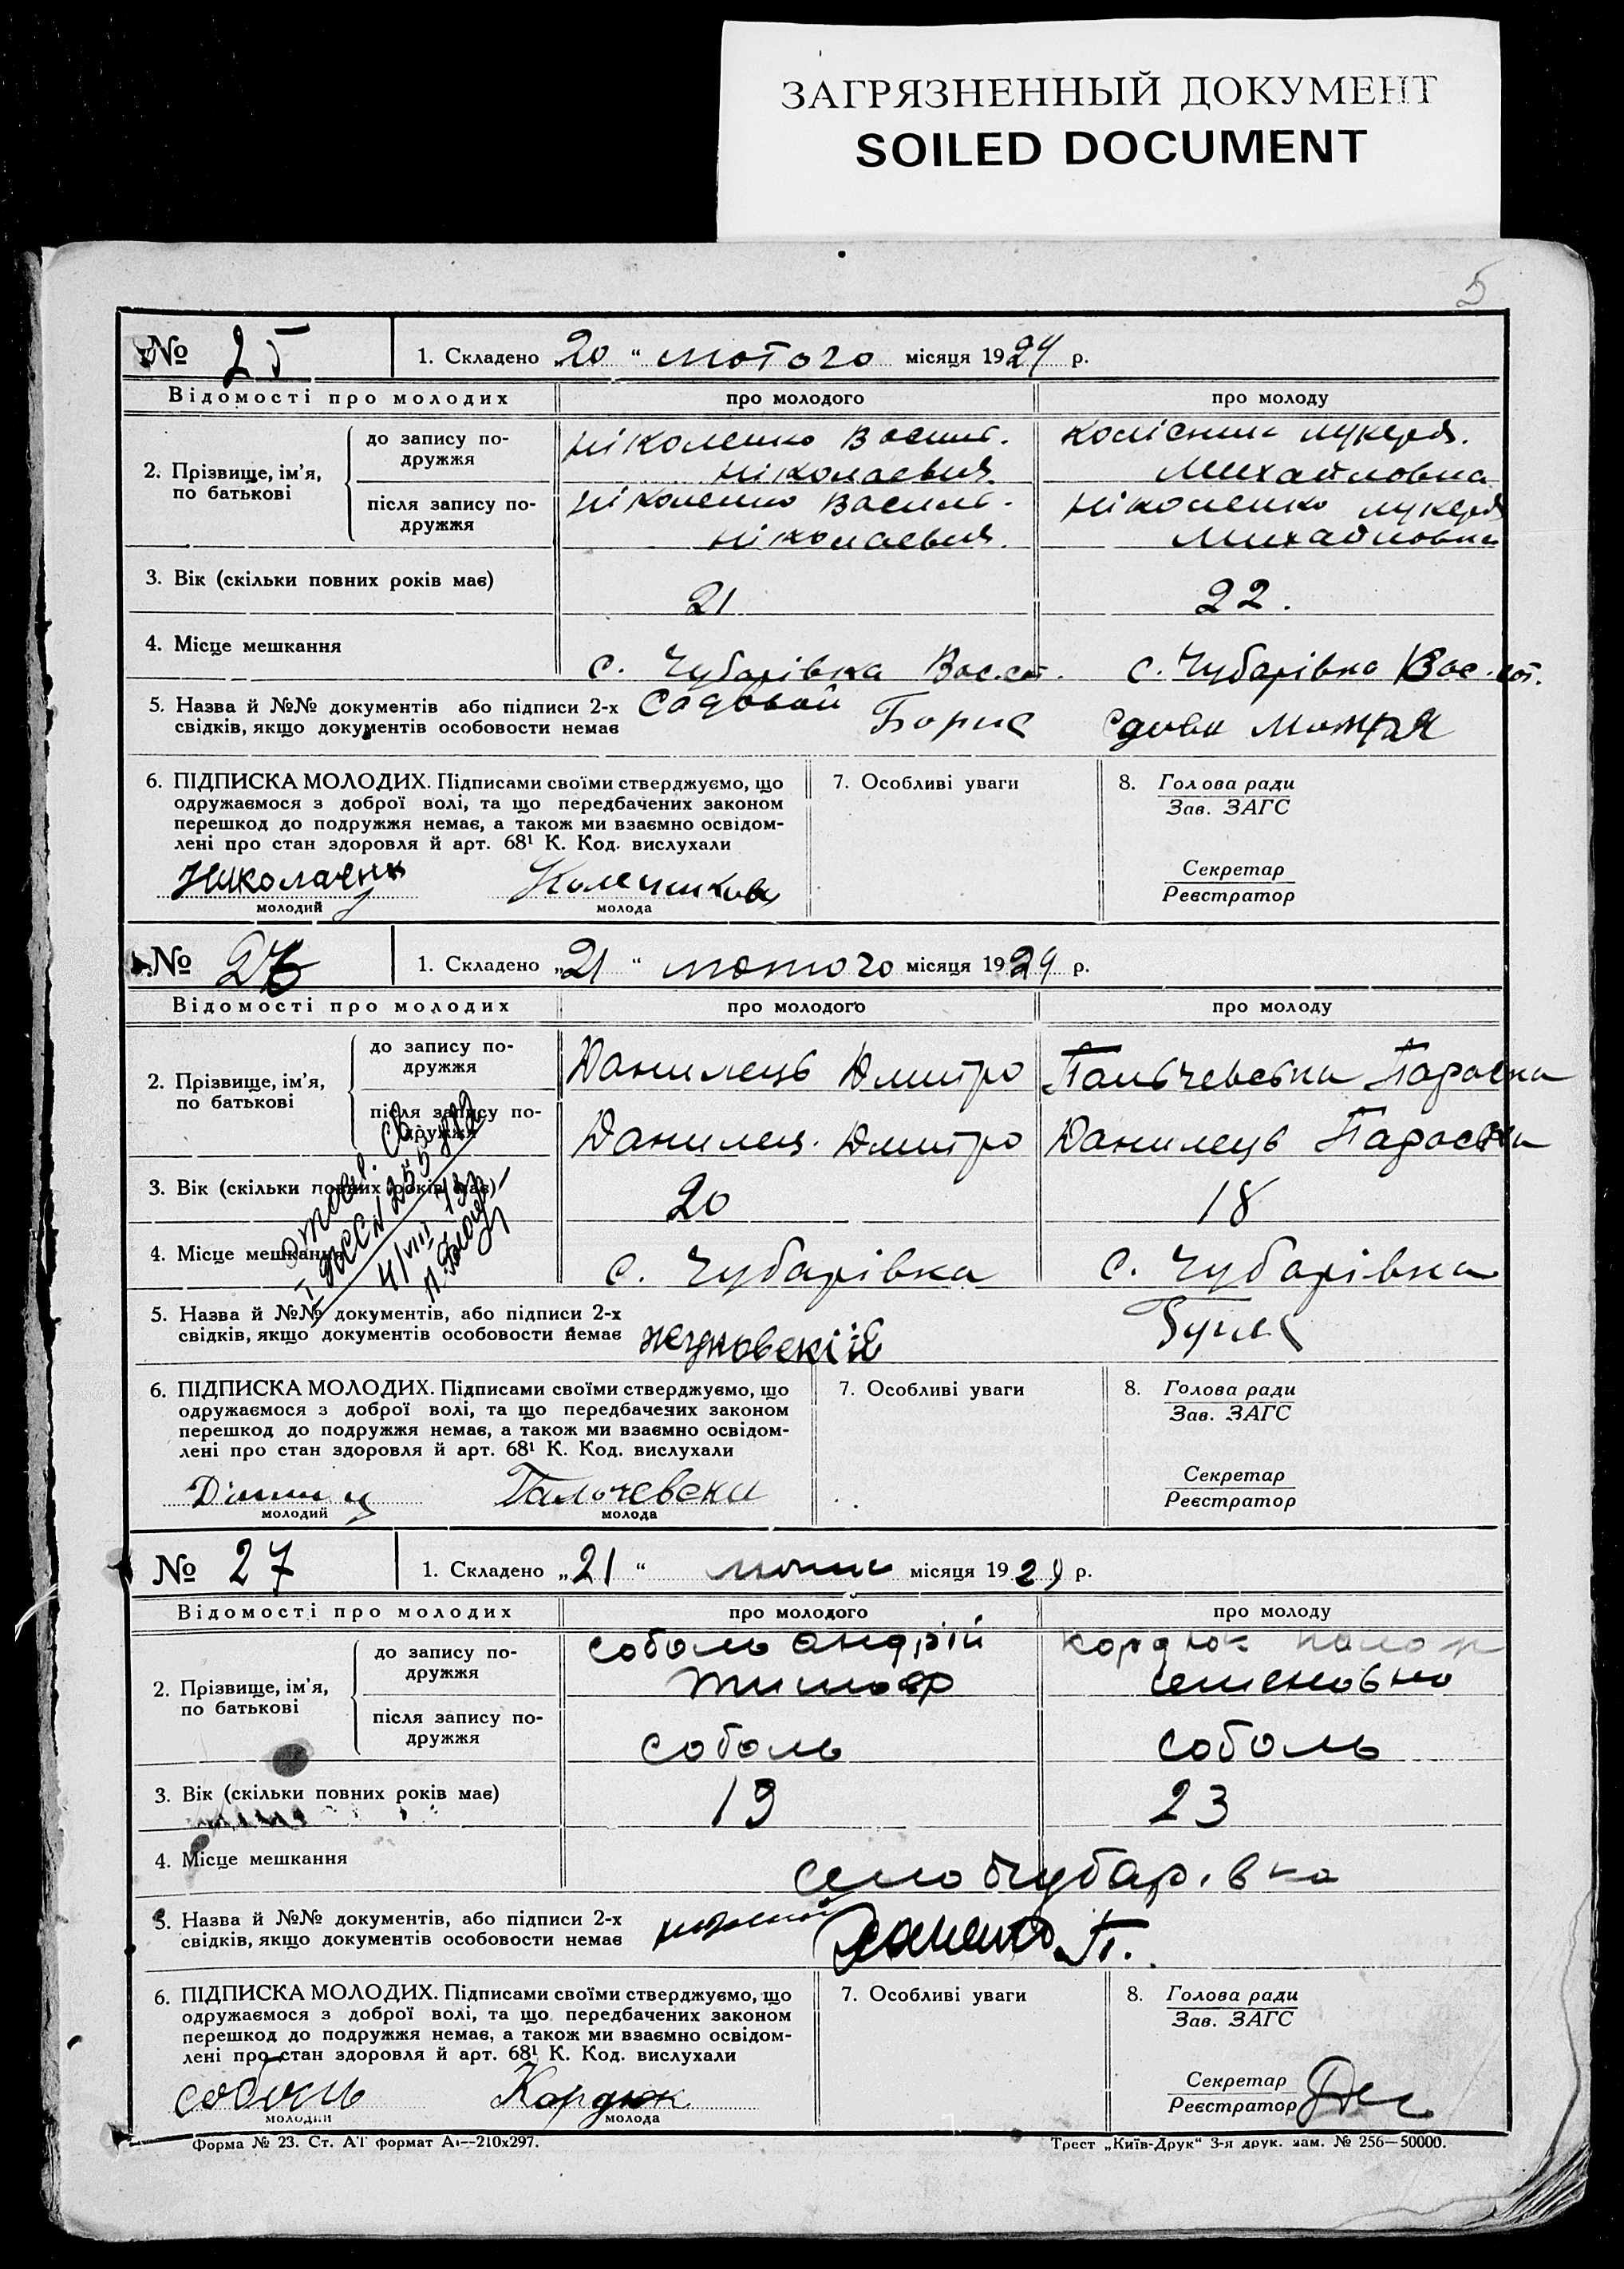 ЗАГРЯЗНЕННЫЙ ДОКУМЕНТ
SOILED DOCUMENT
5
№ 25
1. Складено „20“ лютого місяця 1929 р.
Відомості про молодих
про молодого
про молоду
2. Прізвище, ім’я, по батькові
до запису подружжя
Ніколенко Василь.
Ніколаевич.
Колісник Лукеря.
Михайловна
після запису подружжя
Ніколенко Василь.
Ніколаевич.
Ніколенко Лукеря
Михайловна
3. Вік (скільки повних років має)
21
22.
4. Місце мешкання
с. Чубарівка
с. Чубарівка
5. Назва й №№ документів або підписи 2-х
свідків, якщо документів особовости немає
Садовой
Борис
6. ПІДПИСКА МОЛОДИХ. Підписами своїми стверджуємо, що
одружаємося з доброї волі, та що передбачених законом
перешкод до подружжя немає, а також ми взаємно освідом-
лені про стан здоровля й арт. 68¹ К. Код. вислухали
молодий
молода
7. Особливі уваги
8. Голова ради
Зав. ЗАГС
Секретар
Реєстратор
№ 26
1. Складено „21“ лютого місяця 1929 р.
Відомості про молодих
про молодого
про молоду
2. Прізвище, ім’я,
по батькові
до запису по-
дружжя
Данилець Дмитро
Пальчевська Параска
після запису по-
дружжя
Данилец. Дмитро
Данилець Параска
3. Вік (скільки повних років має)
20
18
4. Місце мешкання
с. Чубарівка
с. Чубарівка
5. Назва й №№ документів, або підписи 2-х
свідків, якщо документів особовости немає
6. ПІДПИСКА МОЛОДИХ. Підписами своїми стверджуємо, що
одружаємося з доброї волі, та що передбачених законом
перешкод до подружжя немає, а також ми взаємно освідом-
лені про стан здоровля й арт. 68¹ К. Код. вислухали
Пальчевска
молодий
молода
7. Особливі уваги
8. Голова ради
Зав. ЗАГС
Секретар
Реєстратор
№ 27
1. Складено „21“ місяця 1929 р.
Відомості про молодих
про молодого
про молоду
2. Прізвище, ім’я,
по батькові
до запису по-
дружжя
соболь андрій
Тимоф
кордюк
семеновно
після запису по-
дружжя
соболь
соболь
3. Вік (скільки повних років має)
19
23
4. Місце мешкання
село Чубарівка
5. Назва й №№ документів, або підписи 2-х
свідків, якщо документів особовости немає
6. ПІДПИСКА МОЛОДИХ. Підписами своїми стверджуємо, що
одружаємося з доброї волі, та що передбачених законом
перешкод до подружжя немає, а також ми взаємно освідом-
лені про стан здоровля й арт. 68¹ К. Код. вислухали
соболь
Кордюк
молодий
молода
7. Особливі уваги
8. Голова ради
Зав. ЗАГС
Секретар
Реєстратор
Форма № 23. Ст. АІ формат А₁—210х297.
Трест „Київ-Друк“ 3-я друк. зам. № 256—50000.